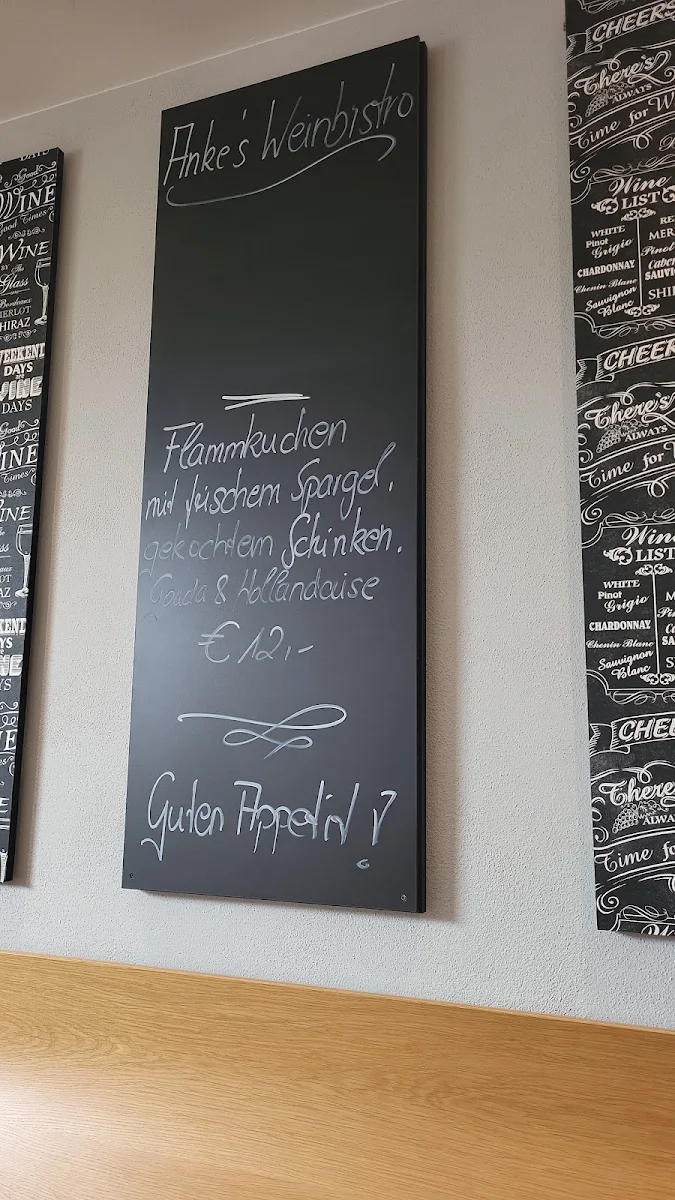 Anke's Weinbistro
Flammkuchen
mit frischem Spargel,
gekochtem Schinken,
Gouda & Hollandaise
€ 12,-
Guten Appetit!
DAYS
Good
WINE
Good Times
WINE
BY The
Glass
Bordeaux
MERLOT
SHIRAZ
WEEKEND
DAYS
are
WINE
DAYS
Good
WINE
Times
WINE
CHEERS
There's
ALWAYS
Time for W
Wine
LIST
WHITE
Pinot
Grigio
CHARDONNAY
Chenin Blanc
Sauvignon
Blanc
RE
MER
Pinot
Caber
SAUVI
SHI
CHEER
There's
ALWAYS
Time for
Wine
LIST
WHITE
Pinot
Grigio
CHARDONNAY
Chenin Blanc
Sauvignon
Blanc
CHEE
There's
ALWA
Time fo